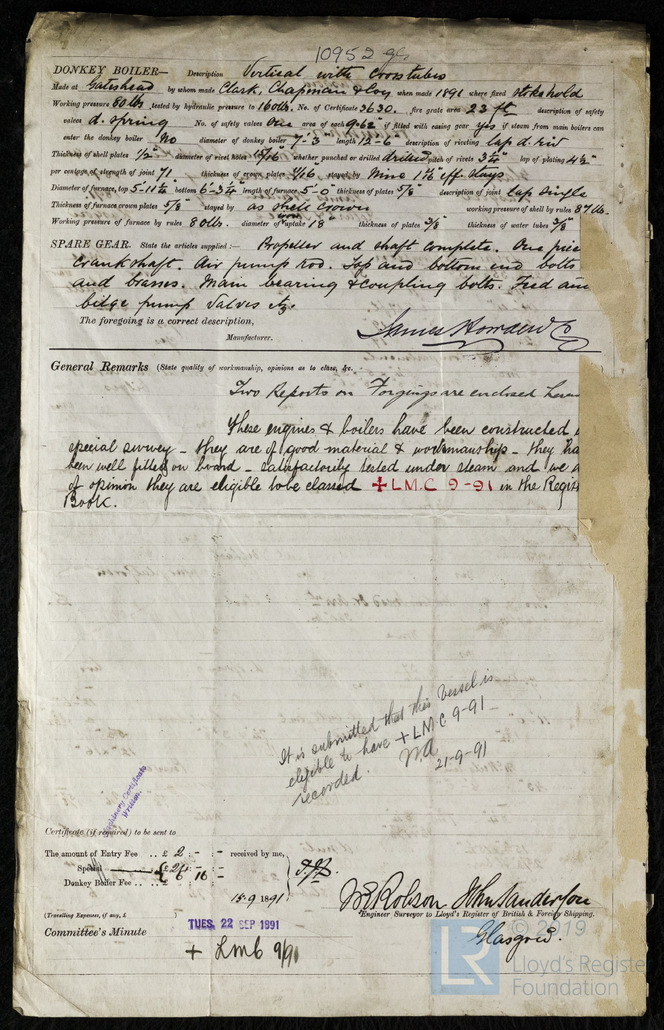 10952 gls
DONKEY BOILER— Description Vertical with Crosstubes
Made at Gateshead by whom made Clark, Chapman & Coy when made 1891 where fixed stokehold
Working pressure 80 lbs tested by hydraulic pressure to 160 lbs. No. of Certificate 3630. fire grate area 23 ft description of safety
valves d. spring No. of safety valves One area of each 9.62" if fitted with casing gear yes if steam from main boilers can
enter the donkey boiler No diameter of donkey boiler 7-3" length 12-6" description of riveting lap d. riv
Thickness of shell plates 1/2" diameter of rivet holes 15/16" whether punched or drilled drilled pitch of rivets 3 1/4" lap of plating 4 1/2"
per centage of strength of joint 71 thickness of crown plates 9/16 stayed by Nine 1 7/8" eff. stays
Diameter of furnace, top 5-11 1/2" bottom 6-3 3/4" length of furnace 5-0" thickness of plates 5/8" description of joint lap single
Thickness of furnace crown plates 5/8" stayed by as shell crown working pressure of shell by rules 87 lbs.
Working pressure of furnace by rules 80 lbs. diameter of uptake 18" thickness of plates 3/8" thickness of water tubes 3/8"
SPARE GEAR. State the articles supplied:— Propeller and shaft complete. One piec
crankshaft. Air pump rod. Top and bottom end bolts
and brasses. Main bearing & coupling bolts. Feed and
bilge pump valves &c.
The foregoing is a correct description,
Manufacturer. James Howden & Co
General Remarks (State quality of workmanship, opinions as to class, &c.
Two Reports on Forgings are enclosed here
These engines & boilers have been constructed
special survey – they are of good material & workmanship – they ha
been well fitted on board – satisfactorily tested under steam and we a
of opinion they are eligible to be classed +LMC 9-91 in the Regis
Book.
It is submitted that this Vessel is
eligible to have +LMC 9-91
recorded.
21-9-91
Certificate
Written.
Certificate (if required) to be sent to
The amount of Entry Fee .. £ 2 : - : - received by me,
Special .. £
Donkey Boiler Fee .. £ : :
18.9 1891
(Travelling Expenses, if any, £ )
W E Robson John Sanderson
Engineer Surveyor to Lloyd's Register of British & Foreign Shipping.
Glasgow.
Committee's Minute TUES. 22 SEP 1891
+ LMC 9/91
LR © 2019
Lloyd's Register
Foundation